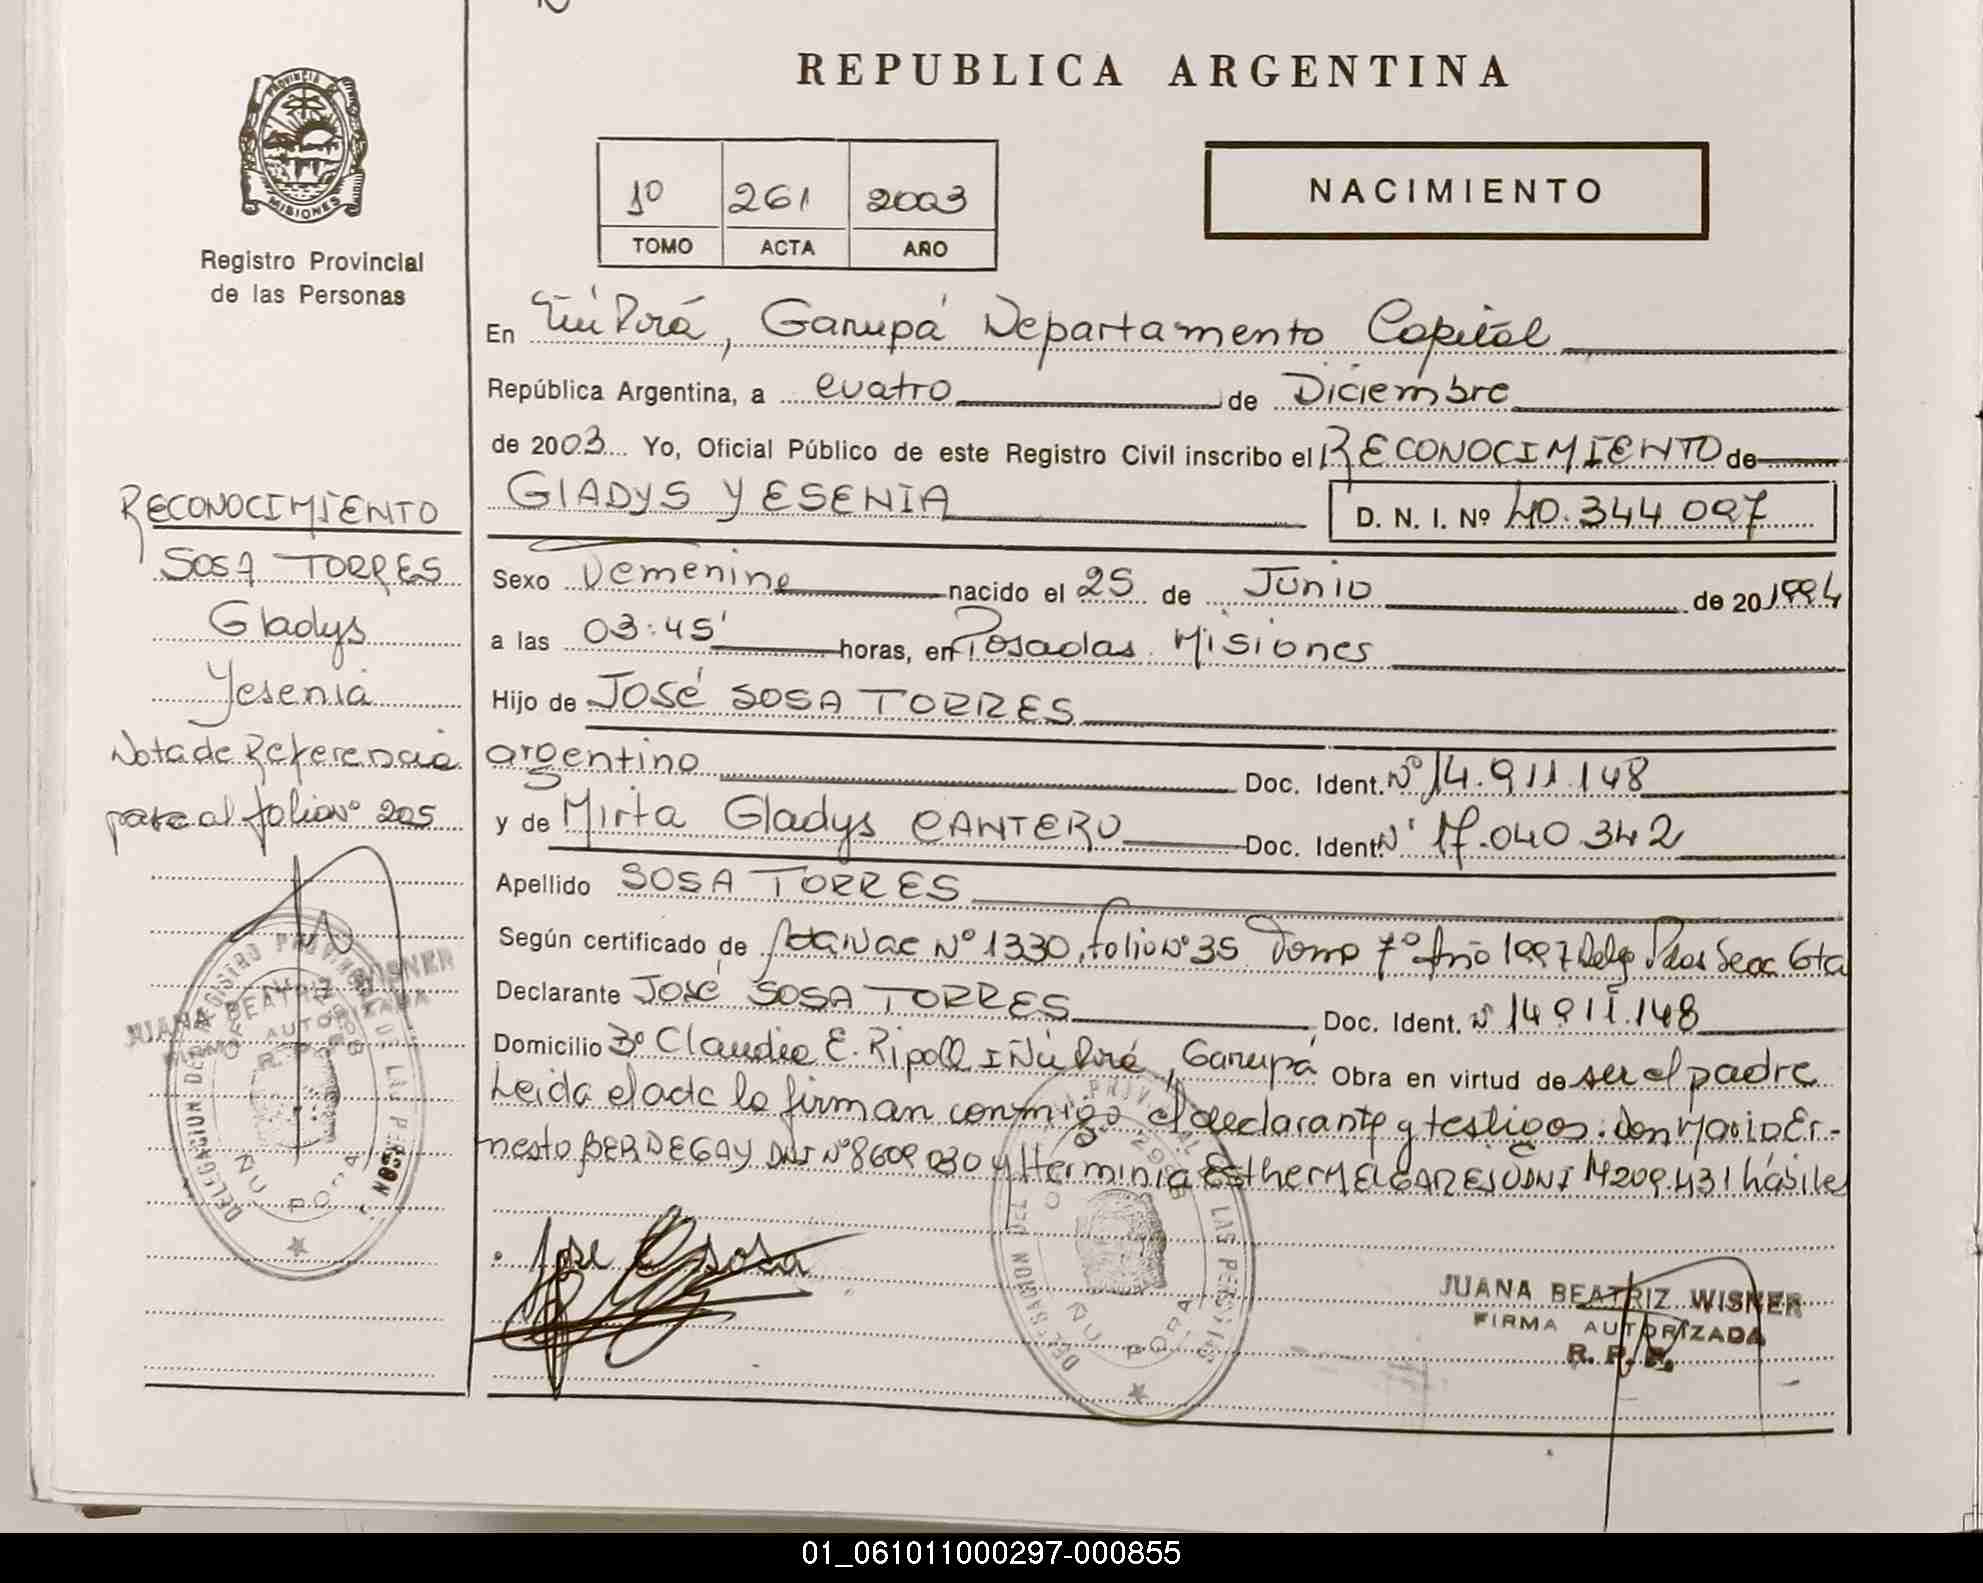 REPUBLICA ARGENTINA
PROVINCIA
MISIONES
Registro Provincial
de las Personas
1º 261 2003
TOMO ACTA AÑO
NACIMIENTO
En Ñú Porá, Garupá Departamento Capital
República Argentina, a cuatro de Diciembre
de 2003 Yo, Oficial Público de este Registro Civil inscribo el RECONOCIMIENTO de
GLADYS YESENIA D. N. I. Nº 40.344.097
Sexo Femenino nacido el 25 de Junio de 20 1994
a las 03:45' horas, en Posadas Misiones
Hijo de José SOSA TORRES
argentino Doc. Ident. Nº 14.911.148
y de Mirta Gladys CANTERO Doc. Ident. Nº 17.040.342
Apellido SOSA TORRES
Según certificado de Acta Nac Nº 1330, folio Nº 35 Tomo 7º Año 1997 Delg Pdas Secc 6ta
Declarante José SOSA TORRES Doc. Ident. Nº 14.911.148
Domicilio Bº Claudio E. Ripoll Ñú Porá, Garupá Obra en virtud de ser el padre
Leída el acta la firman conmigo el declarante y testigos. Don Mario Er-
nesto BERDEGAY DNI Nº 8609.030 y Herminia Esther MELGAREJO DNI 14209.431 hábiles
RECONOCIMIENTO
SOSA TORRES
Gladys
Yesenia
Nota de Referencia
pase al folio nº 205
JUANA BEATRIZ WISNER
FIRMA AUTORIZADA
R. P. P.
DELEGACION DEL REGISTRO PROVINCIAL DE LAS PERSONAS
ÑU PORA
José Sosa
DELEGACION DEL PROVINCIAL LAS PERSONAS
ÑU PORA
JUANA BEATRIZ WISNER
FIRMA AUTORIZADA
R. P. P.
01_061011000297-000855